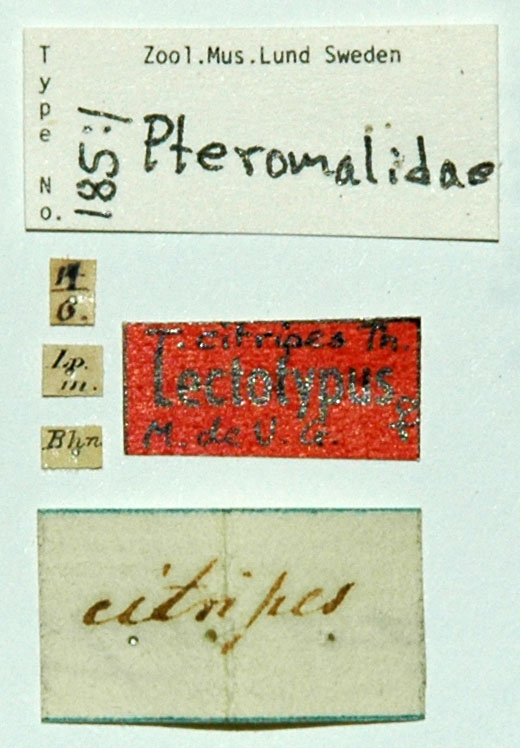 Zool.Mus.Lund Sweden
Type No.
185:1
Pteromalidae
6.
Lp.
m.
Bhn
T. citripes Th.
Lectotypus ♀
M. de V. Gr.
citripes